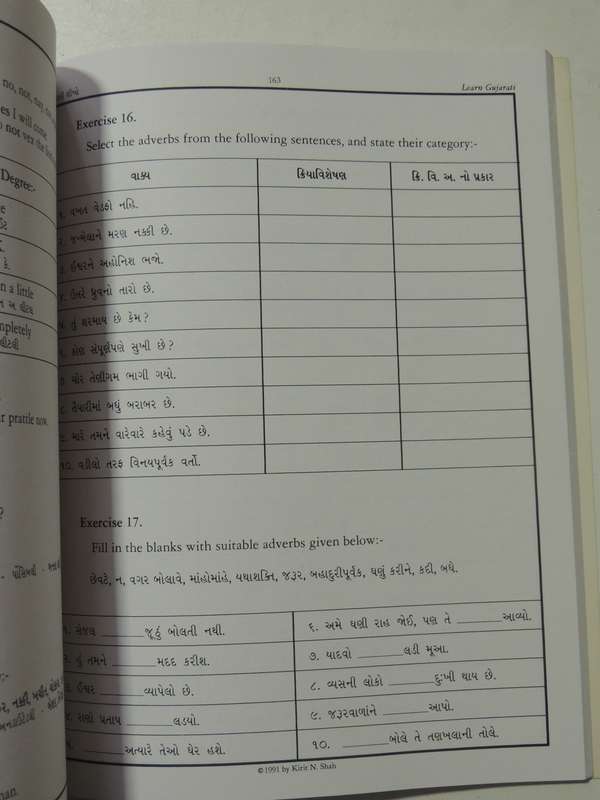 no, not,
es I will come
163
Learn Gujarati
Exercise 16.
Select the adverbs from the following sentences, and state their category:-
Degree:-
વાક્ય ક્રિયાવિશેષણ ક્રિ. વિ. અ. નો પ્રકાર
૧. વખત વેડફો નહિ.
૨. જન્મેલાને મરણ નક્કી છે.
૩. ઈશ્વરને અહોનિશ ભજો.
૪. ઉત્તરે ધ્રુવનો તારો છે.
૫. તું શરમાય છે કેમ?
૬. કોણ સંપૂર્ણપણે સુખી છે?
૭. ચોર તેણીગમ ભાગી ગયો.
૮. તૈયારીમાં બધું બરાબર છે.
૯. મારે તમને વારંવાર કહેવું પડે છે.
૧૦. વડીલો તરફ વિનયપૂર્વક વર્તો.
n a little
mpletely
r prattle now.
Exercise 17.
Fill in the blanks with suitable adverbs given below:-
છેવટે, ન, વગર બોલાવે, માંહોમાંહે, યથાશક્તિ, જરૂર, બહાદુરીપૂર્વક, ઘણું કરીને, કદી, બધે.
૧. સેજલ ______ જૂઠું બોલતી નથી.
૨. હું તમને ______ મદદ કરીશ.
૩. ઈશ્વર ______ વ્યાપેલો છે.
૪. રાણો પ્રતાપ ______ લડયો.
૫. ______ અત્યારે તેઓ ઘેર હશે.
૬. અમે ઘણી રાહ જોઈ, પણ તે ______ આવ્યો.
૭. યાદવો ______ લડી મૂઆ.
૮. વ્યસની લોકો ______ દુઃખી થાય છે.
૯. જરૂરવાળાંને ______ આપો.
૧૦. ______ બોલે તે તણખલાની તોલે.
©1991 by Kirit N. Shah